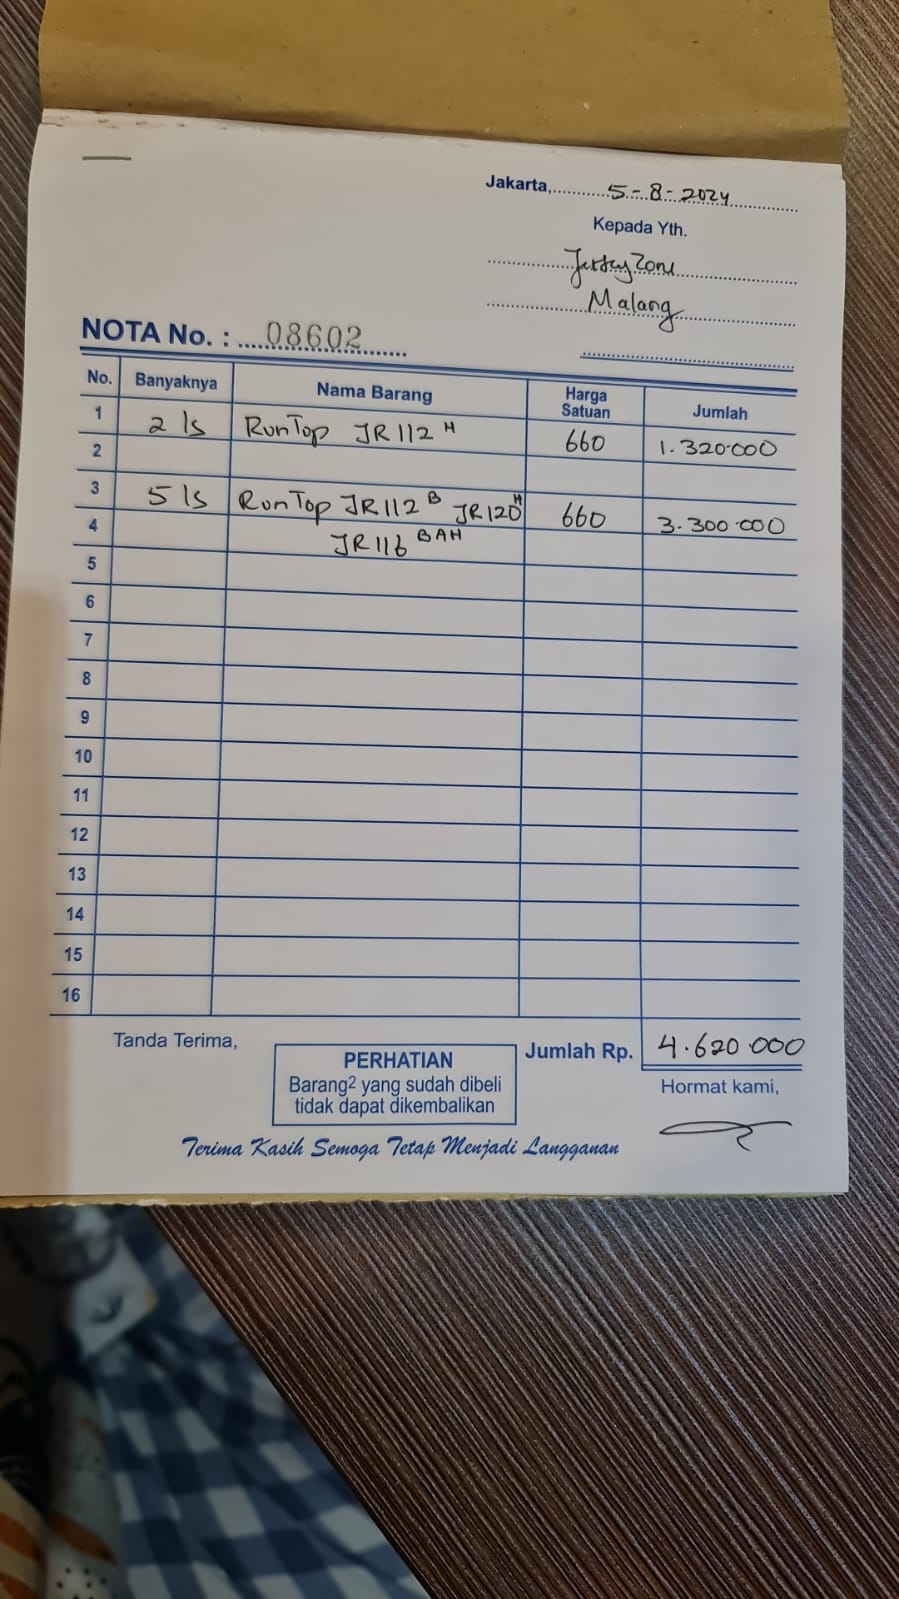 Jakarta, 5-8-2024
Kepada Yth.
JerseyZone
Malang
NOTA No. : 08602
No. Banyaknya Nama Barang Harga Satuan Jumlah
1 2 ls RunTop JR112 H 660 1.320.000
2
3 5 ls RunTop JR112 B JR120 H 660 3.300.000
4 JR116 BAH
5
6
7
8
9
10
11
12
13
14
15
16
Tanda Terima,
Jumlah Rp. 4.620.000
PERHATIAN
Barang2 yang sudah dibeli
tidak dapat dikembalikan
Hormat kami,
Terima Kasih Semoga Tetap Menjadi Langganan